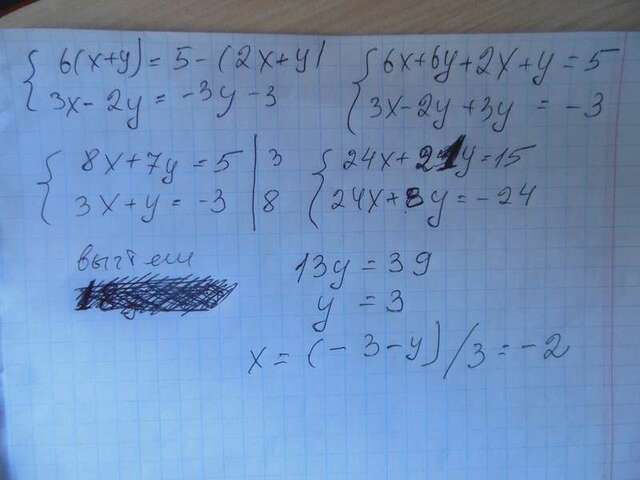 6(x+y) = 5 - (2x+y)
3x - 2y = -3y - 3
6x+6y+2x+y = 5
3x-2y+3y = -3
8x+7y = 5 | 3
3x+y = -3 | 8
24x+21y=15
24x+8y=-24
вычтем
13y = 39
y = 3
x = (-3-y)/3 = -2